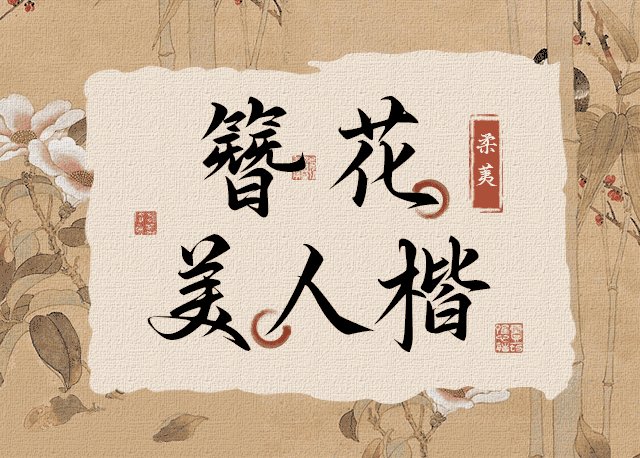 簪花
柔荑
美人楷